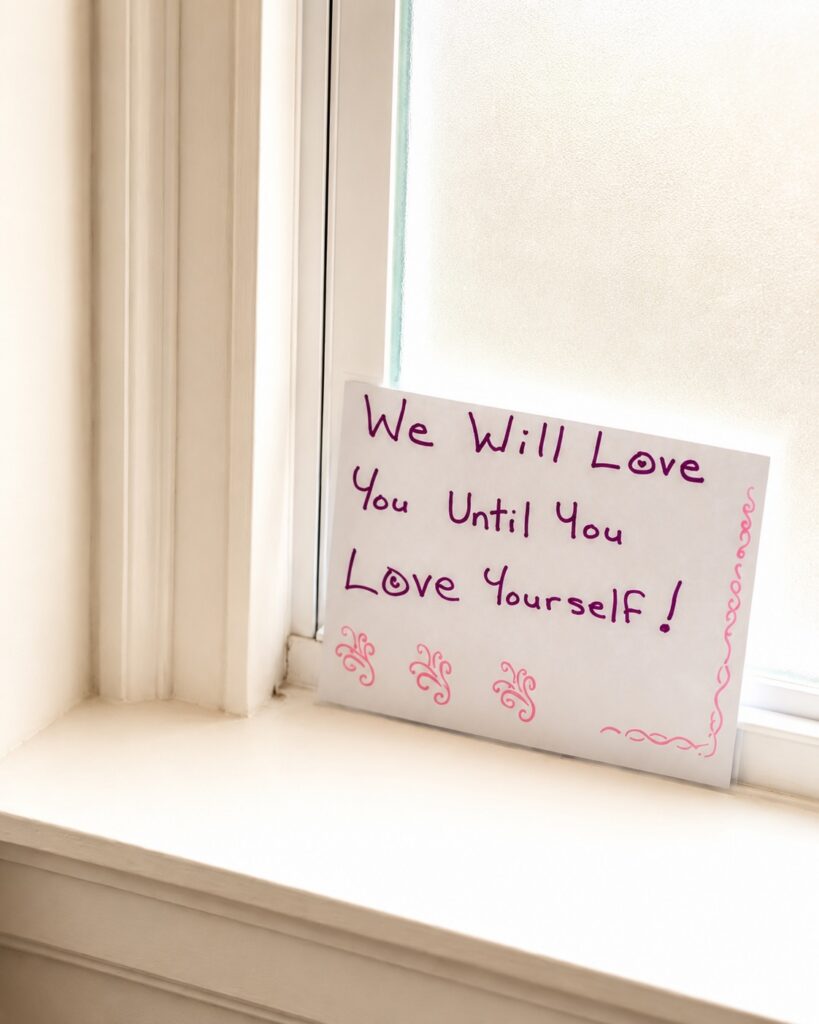 We Will Love
You Until You
Love Yourself!